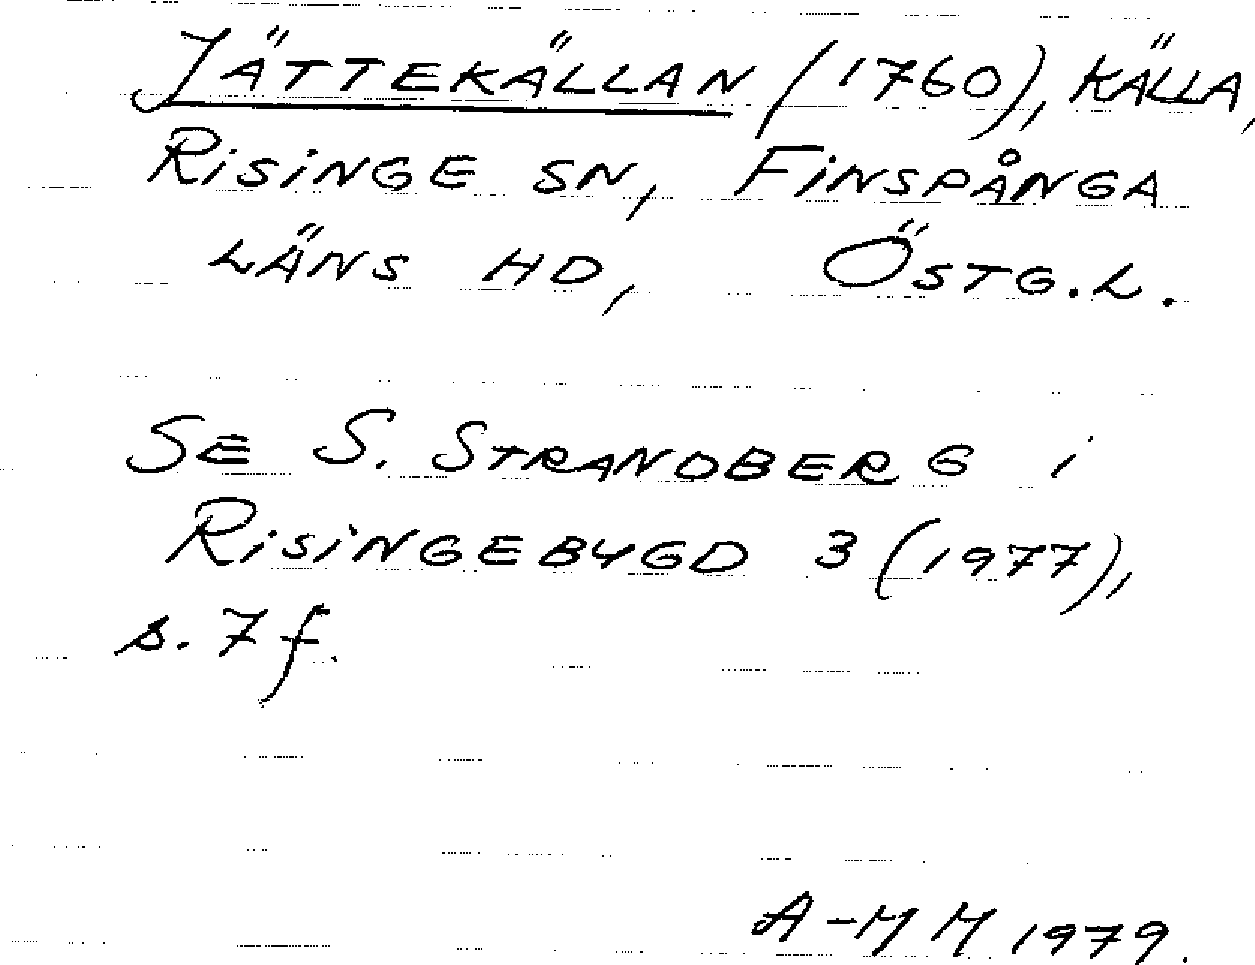 JÄTTEKÄLLAN (1760), KÄLLA,
RISINGE SN, FINSPÅNGA
LÄNS HD, ÖSTG.L.
SE S. STRANDBERG i
RISINGEBYGD 3 (1977),
s. 7 f.
A-M M 1979.